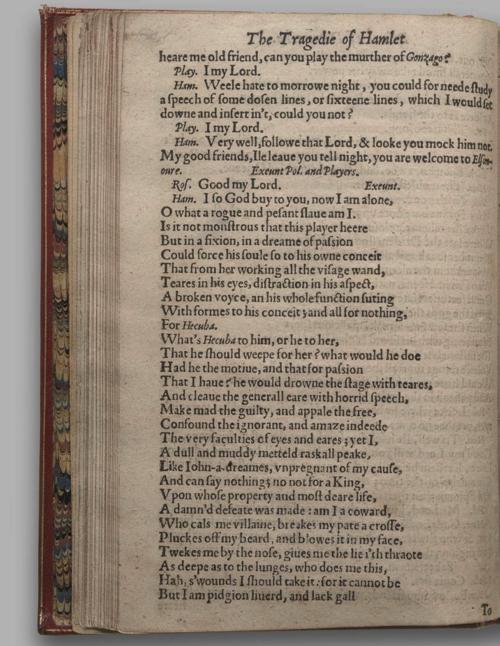 The Tragedie of Hamlet
heare me old friend, can you play the murther of Gonzago?
Play. I my Lord.
Ham. Weele hate to morrowe night, you could for neede study
a speech of some dosen lines, or sixteene lines, which I would set
downe and insert in't, could you not?
Play. I my Lord.
Ham. Very well, followe that Lord, & looke you mock him not.
My good friends, Ile leaue you tell night, you are welcome to Elson-
oure. Exeunt Pol. and Players.
Ros. Good my Lord. Exeunt.
Ham. I so God buy to you, now I am alone,
O what a rogue and pesant slaue am I.
Is it not monstrous that this player heere
But in a fixion, in a dreame of passion
Could force his soule so to his owne conceit
That from her working all the visage wand,
Teares in his eyes, distraction in his aspect,
A broken voyce, an his whole function suting
With formes to his conceit; and all for nothing,
For Hecuba.
What's Hecuba to him, or he to her,
That he should weepe for her? what would he doe
Had he the motiue, and that for passion
That I haue? he would drowne the stage with teares,
And cleaue the generall eare with horrid speech,
Make mad the guilty, and appale the free,
Confound the ignorant, and amaze indeede
The very faculties of eyes and eares; yet I,
A dull and muddy metteld raskall peake,
Like Iohn-a-dreames, vnpregnant of my cause,
And can say nothing; no not for a King,
Vpon whose property and most deare life,
A damn'd defeate was made: am I a coward,
Who cals me villaine, breakes my pate a crosse,
Pluckes off my beard, and blowes it in my face,
Twekes me by the nose, giues me the lie i'th thraote
As deepe as to the lunges, who does me this,
Hah, s'wounds I should take it: for it cannot be
But I am pidgion liuerd, and lack gall
To